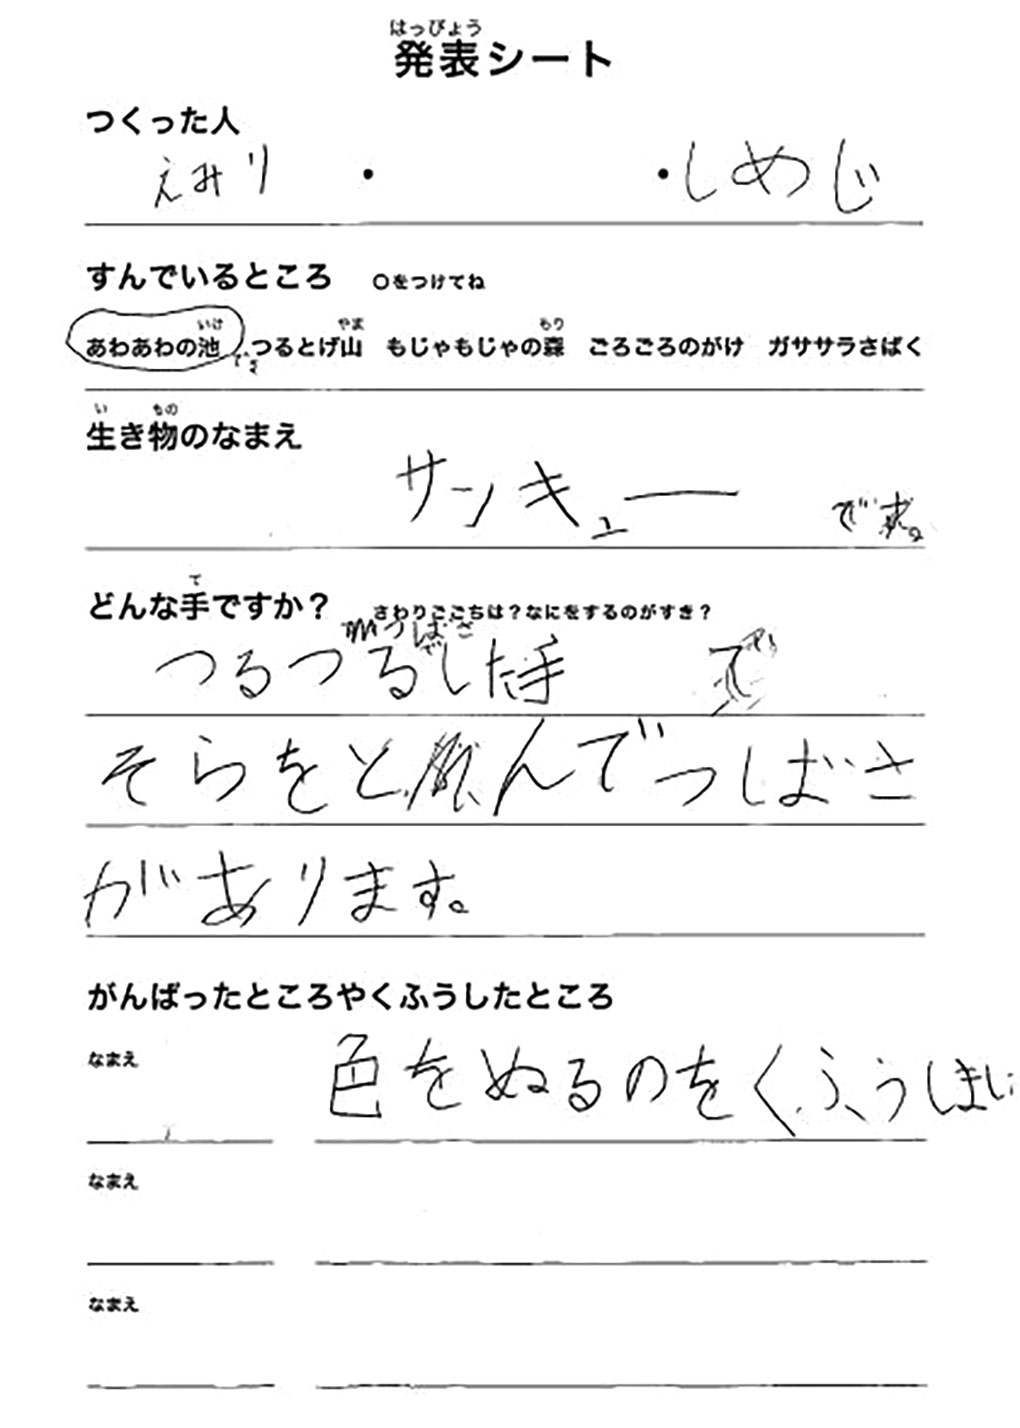 はっぴょう
発表シート
つくった人
えみり ・ ・しめじ
すんでいるところ ○をつけてね
いけ やま もり
あわあわの池 つるとげ山 もじゃもじゃの森 ごろごろのがけ ガササラさばく
い もの
生き物のなまえ
サンキュー です。
て
どんな手ですか? さわりごこちは?なにをするのがすき?
つばさ
つるつるした手 で
そらをとんでつばさ
があります。
がんばったところやくふうしたところ
なまえ 色をぬるのをくふうしまし
なまえ
なまえ